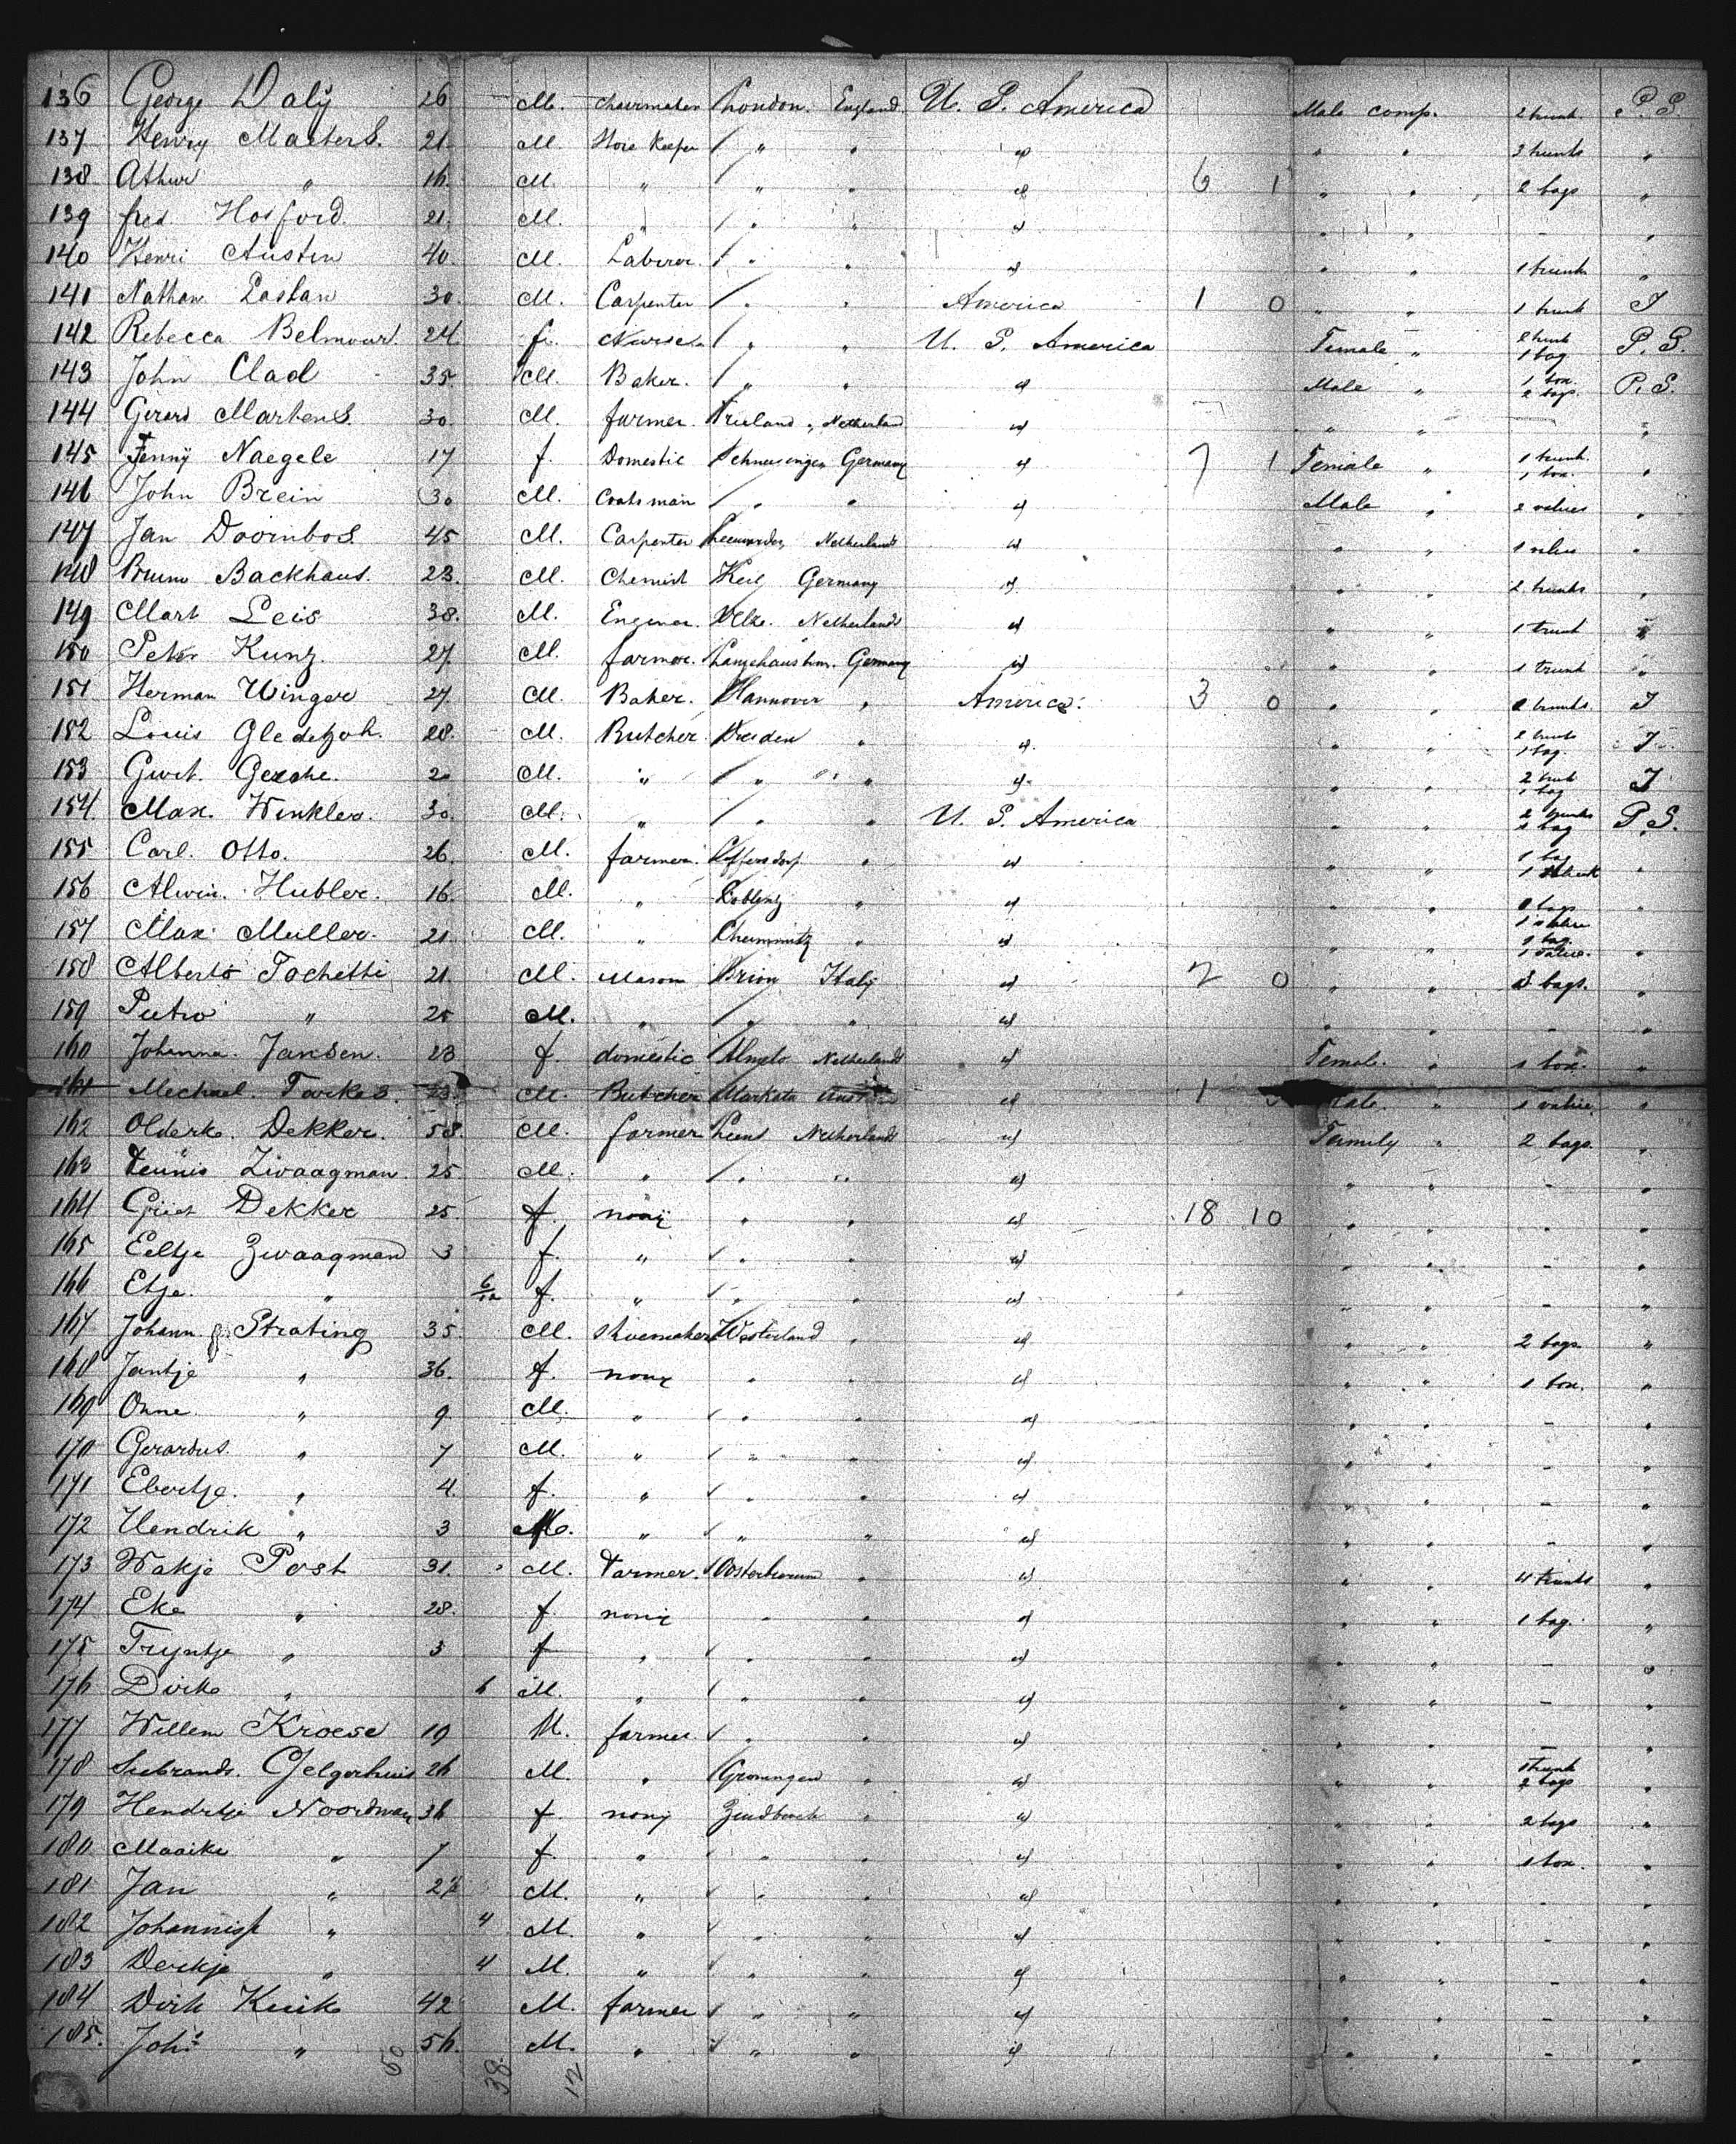 136 George Daly 26 M. chairmaker London. England U. S. America Male comp. 2 trunk. P. S.
137 Henry Masters. 21. M. Store Keeper " " " " " 3 trunks "
138 Athur " 16. M. " " " " 6 1 " " 2 bags "
139 fred Hosford. 21. M. " " " " " " - "
140 Henri Austin 40. M. Laborer. " " " " " 1 trunk "
141 Nathan 30 M. Carpenter " " America 1 0 " " 1 trunk T
142 Rebecca 24 f. Nurse " " U. S. America Female " 2 trunk 1 bag P. S.
143 John Clad 35. M. Baker. " " " Male " 1 box. 2 bags. P. S.
144 Gerard Martens. 30. M. farmer. Netherland " " " - "
145 Fenny Naegele 17 f. Domestic Germany " 7 1 Female " 1 trunk. 1 box. "
146 John Brein 30 M. " " " Male " 2 valises "
147 Jan Doornbos. 45 M. Carpenter Leeuwarden Netherlands " " " 1 valise "
148 Bruno Backhaus. 23. M. Chemist Keil Germany " " " 2 trunks "
149 Mart Leis 38. M. Enginer. Netherlands " " " 1 trunk "
150 Peter Kunz. 27. M. farmer. Germany " " " 1 trunk "
151 Herman Winger 27. M. Baker. Hannover " America. 3 0 " " 2 trunks T
152 Louis 28. M. Butcher. Dresden " " " " 2 trunk 1 bag. T.
153 20 M. " " " " " " 2 trunk 1 bag T
154 Max. Winkler. 30. M. " " " U. S. America " " 2 trunks 1 bag P. S.
155 Carl. Otto. 26. M. farmer. " " " " 1 bag 1 trunk "
156 Alwin. Hubler. 16. M. " Koblenz " " " " "
157 Max Muller. 21 M. " Chemnitz " " " " 1 bag. 1 valise. "
158 Alberto Tochetti 21. M. Mason Brion Italy " 2 0 " " 3 bags. "
159 Pietro " 25 M. " " " " " " - "
160 Johanna. Jansen. 23 f. domestic Almelo Netherlands " Female. " 1 box. "
161 Mechael. Farkes. 23. M. Butcher Markata " 1 Male. " 1 valise "
162 Olderk. Dekker. 58. M. farmer Leens Netherlands " Family " 2 bags. "
163 Teunis Zwaagman. 25. M. " " " " " " - "
164 Griet Dekker 25. f. none " " " 18 10 " " - "
165 Eeltje Zwaagman 3 f. " " " " " " - "
166 Etje. " 6/12 f. " " " " " " - "
167 Johann. Strating 35. M. shoemaker Westerland " " " " 2 bags. "
168 Jantje " 36. f. none " " " " " 1 box. "
169 Onne " 9. M. " " " " " " - "
170 Gerardus. " 7 M. " " " " " " - "
171 Ebertje. " 4. f. " " " " " " - "
172 Hendrik " 3 M. " " " " " " - "
173 Wakje Post 31. M. Farmer. " " " " 4 trunks "
174 Eke " 28. f. none " " " " " 1 bag. "
175 Tryntje " 3 f " " " " " " - "
176 Dirk " M. " " " " " " - "
177 Willem Kroese 19 M. farmer. " " " " " - "
178 Siebrands. Gelgerhuis 26 M. " Groningen " " " " 1 trunk 2 bags "
179 Hendrikje Noordman 36 f. none " " " " 2 bags "
180 Maaike " 7 f. " " " " " " 1 box. "
181 Jan " M. " " " " " " - "
182 " 4 M. " " " " " " - "
183 Derkje " 4 M. " " " " " " - "
184 Dirk Kuik 42 M. farmer " " " " " - "
185. Joh. " 56. M. " " " " " " - "
50 38. 12